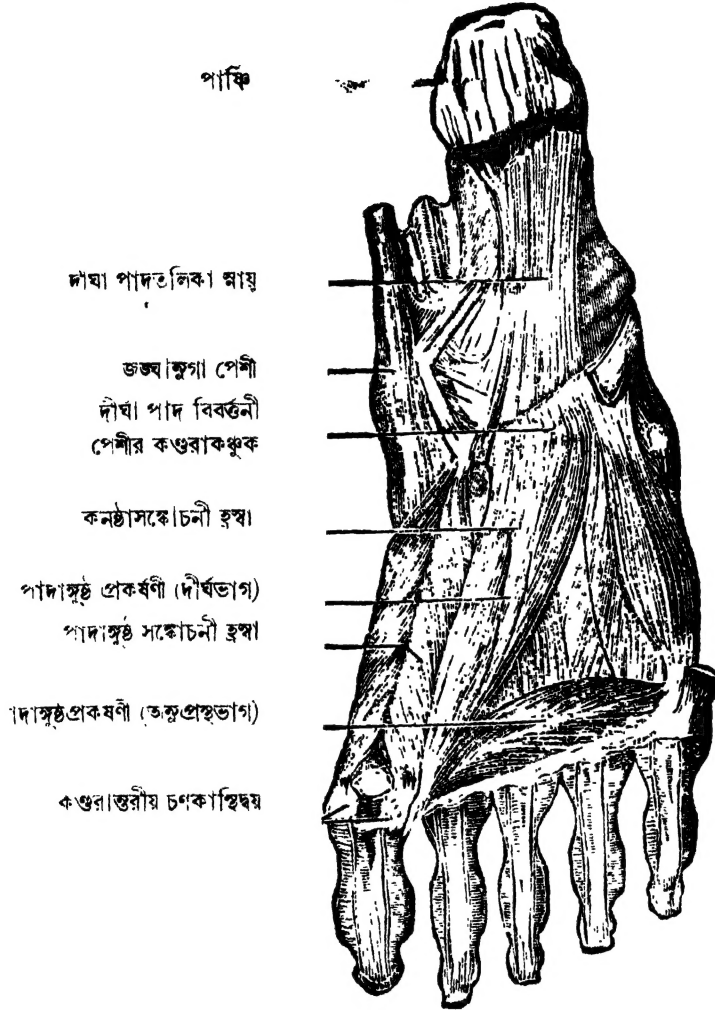 পার্ষ্ণি
দীঘা পাদতলিকা স্নায়ু
জঙ্ঘানুগা পেশী
দীর্ঘা পাদ বিবর্ত্তনী
পেশীর কণ্ডরাকঞ্চুক
কনষ্ঠাসঙ্কোচনী হ্রস্বা
পাদাঙ্গুষ্ঠ প্রকর্ষণী (দীর্ঘভাগ)
পাদাঙ্গুষ্ঠ সঙ্কোচনী হ্রস্বা
াদাঙ্গুষ্ঠপ্রকষণী (অনুপ্রস্থভাগ)
কণ্ডরান্তরীয় চণকাস্থিদ্বয়